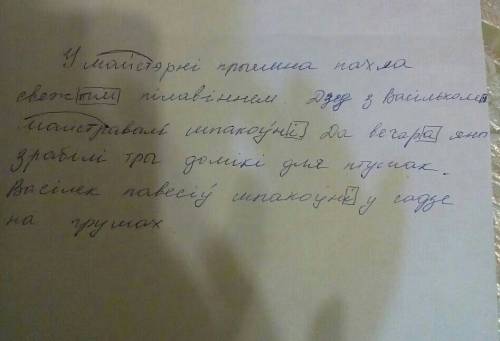 У майстэрні прыемна пахла
свежым пілавіннем Дзед з Васільком
майстравалі шпакоўні Да вечара яны
зрабілі тры домікі для птушак.
Васілек павесіў шпакоўні у садзе
на грушах